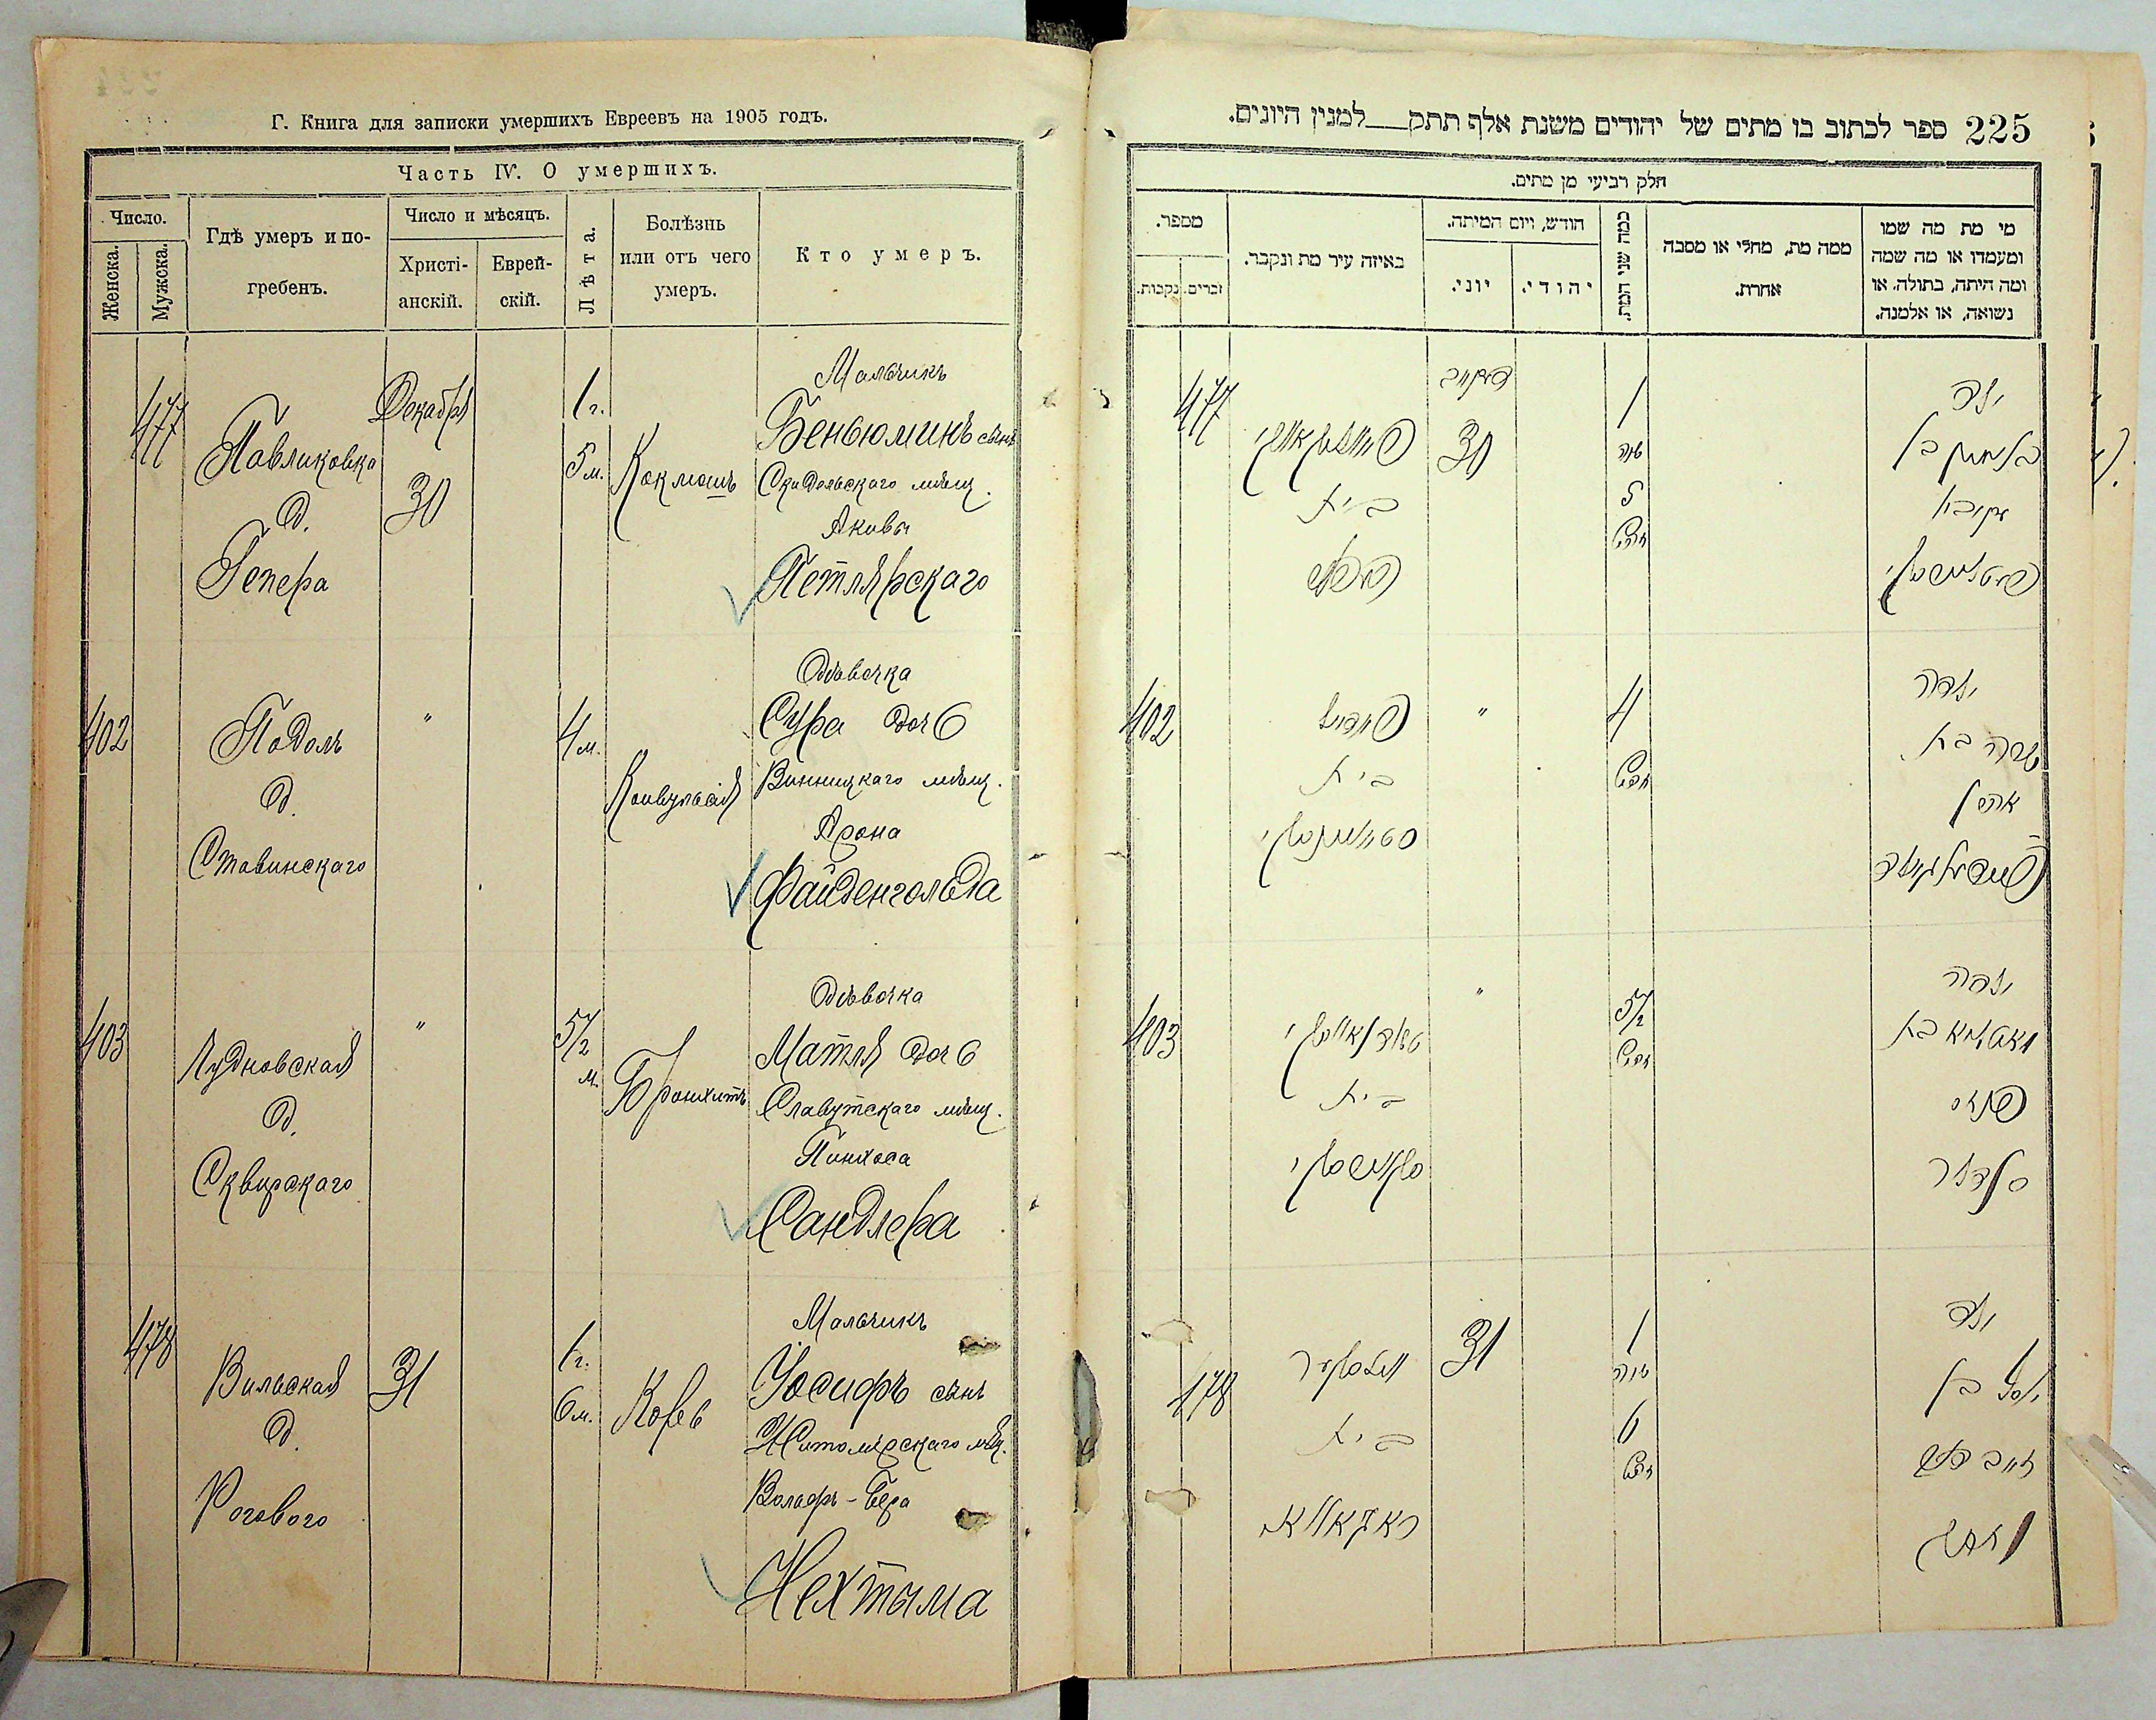 Г. Книга для записки умершихъ Евреевъ на 1905 годъ.
Часть IV. О умершихъ.
Число.
Женска.
Мужска.
Гдѣ умеръ и по-
гребенъ.
Число и мѣсяцъ.
Христі-
анскій.
Еврей-
скій.
Лѣта.
Болѣзнь
или отъ чего
умеръ.
Кто умеръ.
477
Павликовка
д.
Гепера
Декабря
30
1 г.
5 м.
Коклюшъ
Мальчикъ
Беньюминъ сынъ
Скидельскаго мѣщ.
Акивы
Петлярскаго
402
Подолъ
д.
Ставинскаго
"
4 м.
Конвульсія
Дѣвочка
Сура дочь
Винницкаго мѣщ.
Арона
Файденгольда
403
Чудновская
д.
Сквирскаго
"
5 1/2
м.
Бронхитъ
Дѣвочка
Матля дочь
Славутскаго мѣщ.
Пинхоса
Сандлера
478
Вильская
д.
Рогового
31
1 г.
6 м.
Корь
Мальчикъ
Іосифъ сынъ
Житомірскаго мѣщ.
Вольфъ-Бера
Нехтыма
225 ספר לכתוב בו מתים של יהודים משנת אלף תתק__למנין היונים.
חלק רביעי מן מתים.
מספר.
זכרים.
נקבות.
באיזה עיר מת ונקבר.
חודש, ויום המיתה.
יוני.
יהודי.
כמה שני המת.
ממה מת, מחלי או מסבה
אחרת.
מי מת מה שמו
ומעמדו או מה שמה
ומה היתה, בתולה, או
נשואה, או אלמנה.
477
בית
30
1
שנה
5
חדש
ילד
בנימין בן
עקיבא
402
פאדאל
בית
"
4
חדש
ילדה
שרה בת
אהרן
403
בית
"
5 1/2
חדש
ילדה
בת
פנחס
סנדלר
478
בית
31
1
שנה
6
חדש
ילד
יוסף בן